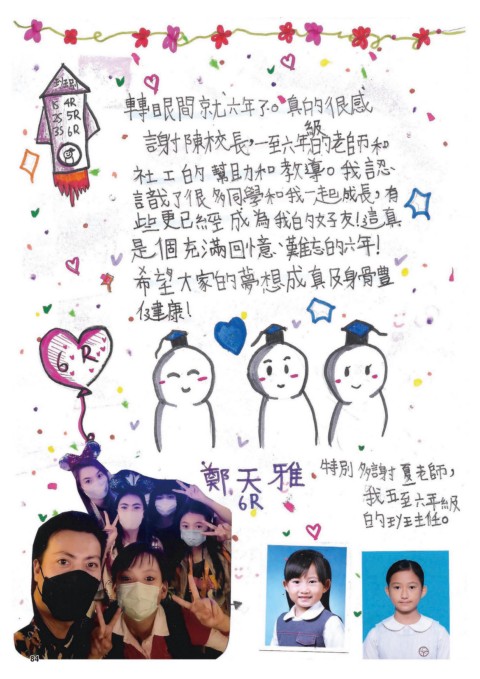 班別
1S 4R
2S 5R
3S 6R
轉眼間就六年了。真的很感
謝陳校長，一至六年級的老師和
社工的幫助和教導。我認
識了很多同學和我一起成長，有
些更已經成為我的好友！這真
是個充滿回憶、難忘的六年！
希望大家的夢想成真及身體
健康！
6R
鄭天雅
6R
特別多謝夏老師，
我五至六年級
的班主任。
64